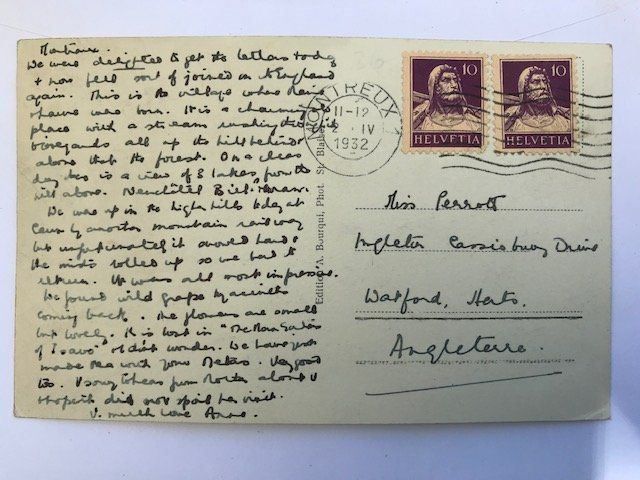 Montreux.
We were delighted to get the letters today
& now feel sort of joined on to England
again. This is the village where
were born. It is a charming
place with a stream
vineyards all up the hill behind
above that the forest. On a clear
day there is a view of 3 lakes from the
hill above. Neuchâtel Biel, Moran.
We were up in the higher hills today at
Caux by another mountain railway
but unfortunately it snowed hard &
the mists rolled up so we had to
return. It was all most impressive.
We found wild grape hyacinths
coming back. The flowers are small
but lovely. He is lost in "The
of " & I don't wonder. We have just
made tea with your Melers. Very good
too. V. sorry to hear from about
& hope it did not spoil her visit.
V. much love Anne.
MONTREUX
11-12
IV
1932
10
HELVETIA
10
HELVETIA
Edition A. Bourqui, Phot. St. Blaise
Miss Perrott
Ingleter Cassiobury Drive
Watford, Herts.
Angleterre.